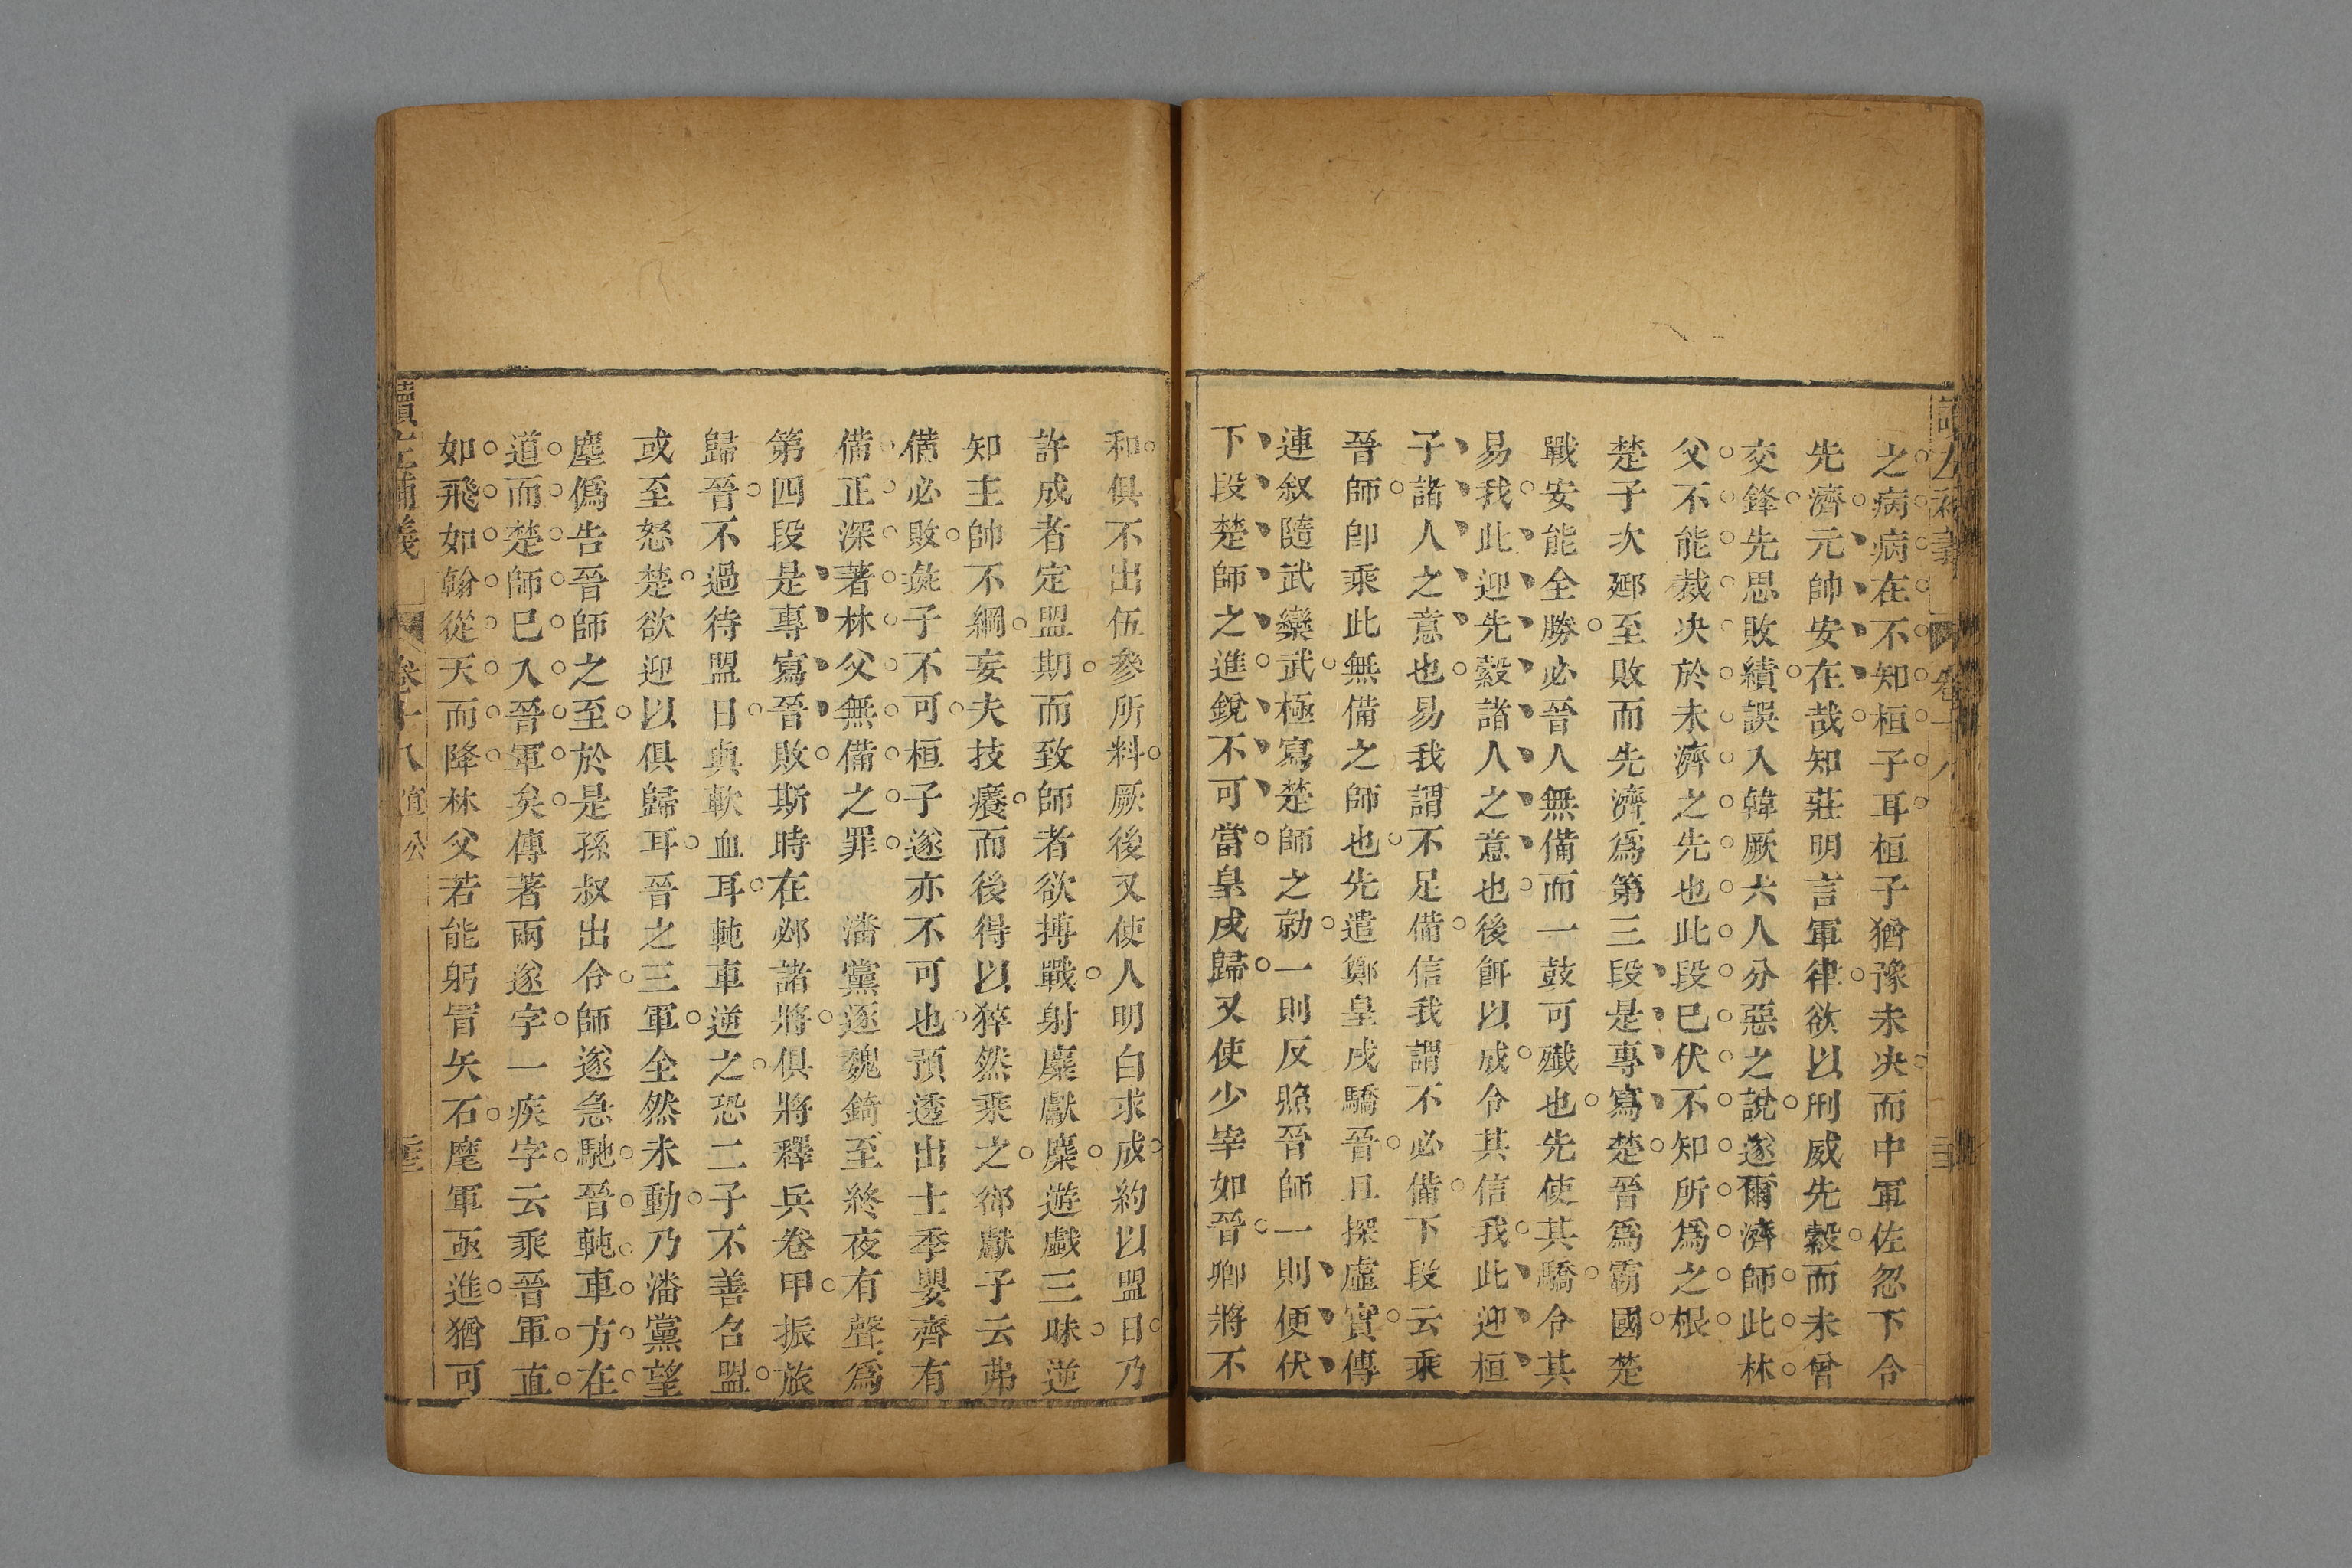 之病病在不知桓子耳桓子猶豫未决而中軍佐忽下令
先濟元帥安在哉知莊明言軍律欲以刑威先縠而未曾
交鋒先思敗績誤入韓厥六人分惡之說遂爾濟師此林
父不能裁决於未濟之先也此段已伏不知所爲之根
楚子次郔至敗而先濟爲第三段是專寫楚晉爲霸國楚
戰安能全勝必晉人無備而一鼓可殲也先使其驕令其
易我此迎先縠諸人之意也後餌以成令其信我此迎桓
子諸人之意也易我謂不足備信我謂不必備下段云乘
晉師卽乘此無備之師也先遣鄭皇戌驕晉且探虛實傳
連叙隨武欒武極寫楚師之勍一則反照晉師一則便伏
下段楚師之進銳不可當皇戌歸又使少宰如晉卿將不
和俱不出伍參所料厥後又使人明白求成約以盟日乃
許成者定盟期而致師者欲搏戰射麋獻麋遊戲三昧逆
知主帥不綱妄夫技癢而後得以猝然乘之郤獻子云弗
備必敗彘子不可桓子遂亦不可也預透出士季嬰齊有
備正深著林父無備之罪　潘黨逐魏錡至終夜有聲爲
第四段是專寫晉敗斯時在邲諸將俱將釋兵卷甲振旅
歸晉不過待盟日與歃血耳軘車逆之恐二子不善召盟
或至怒楚欲迎以俱歸耳晉之三軍全然未動乃潘黨望
塵僞告晉師之至於是孫叔出令師遂急馳晉軘車方在
道而楚師已入晉軍矣傳著兩遂字一疾字云乘晉軍直
如飛如翰從天而降林父若能躬冒矢石麾軍亟進猶可
讀左補義　卷十八　宣公